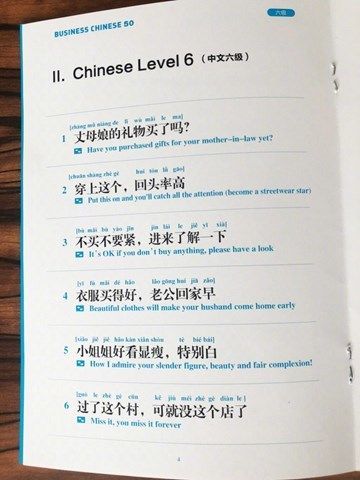 BUSINESS CHINESE 50
六级
II. Chinese Level 6（中文六级）
[zhàng mǔ niáng de lǐ wù mǎi le ma]
1 丈母娘的礼物买了吗?
Have you purchased gifts for your mother-in-law yet?
[chuān shàng zhè gè huí tóu lǜ gāo]
2 穿上这个，回头率高
Put this on and you'll catch all the attention (become a streetwear star)
[bù mǎi bù yào jǐn jìn lái le jiě yī xià]
3 不买不要紧，进来了解一下
It's OK if you don't buy anything, please have a look
[yī fú mǎi dé hǎo lǎo gōng huí jiā zǎo]
4 衣服买得好，老公回家早
Beautiful clothes will make your husband come home early
[xiǎo jiě jiě hǎo kàn xiǎn shòu tè bié bái]
5 小姐姐好看显瘦，特别白
How I admire your slender figure, beauty and fair complexion!
[guò le zhè gè cūn kě jiù méi zhè gè diàn le]
6 过了这个村，可就没这个店了
Miss it, you miss it forever
4